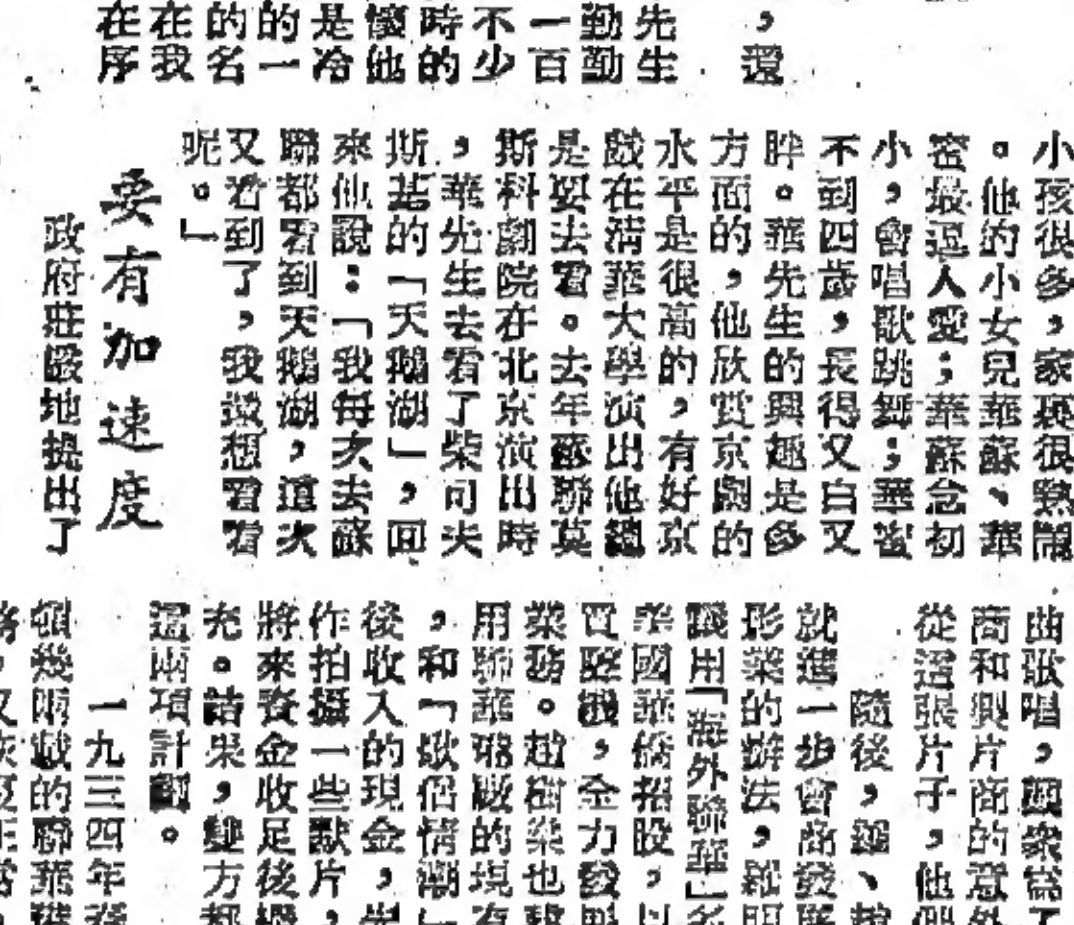 ，還
先生
勤勤
一百
不少
時的
懷他
是冷
的一
的名
在我
在序
小孩很多，家裏很熱鬧
。他的小女兒華蘇、華
密最逗人愛；華蘇念初
小，會唱歌跳舞；華密
不到四歲，長得又白又
胖。華先生的興趣是多
方面的，他欣賞京劇的
水平是很高的，有好京
戲在清華大學演出他總
是要去看。去年蘇聯莫
斯科劇院在北京演出時
，華先生去看了柴可夫
斯基的「天鵝湖」，回
來他說：「我每次去蘇
聯都看到天鵝湖，這次
又看到了，我還想看看
呢。」
要有加速度
政府莊嚴地提出了
曲歌唱，觀衆爲了
商和興片商的意外
從這張片子，他們
隨後，羅、
就進一步會商發
影業的辦法，
用「海外聯華」名
美國華僑招股，以
置 機，全力發
業務。趙樹燊也
用聯華 的現有
，和「歌侶情潮」
後收入的現金，
作拍攝一些默片，
將來資金收足後
充。結果，雙方都
這兩項計劃。
一九三四年
頓幾間戲的聯華